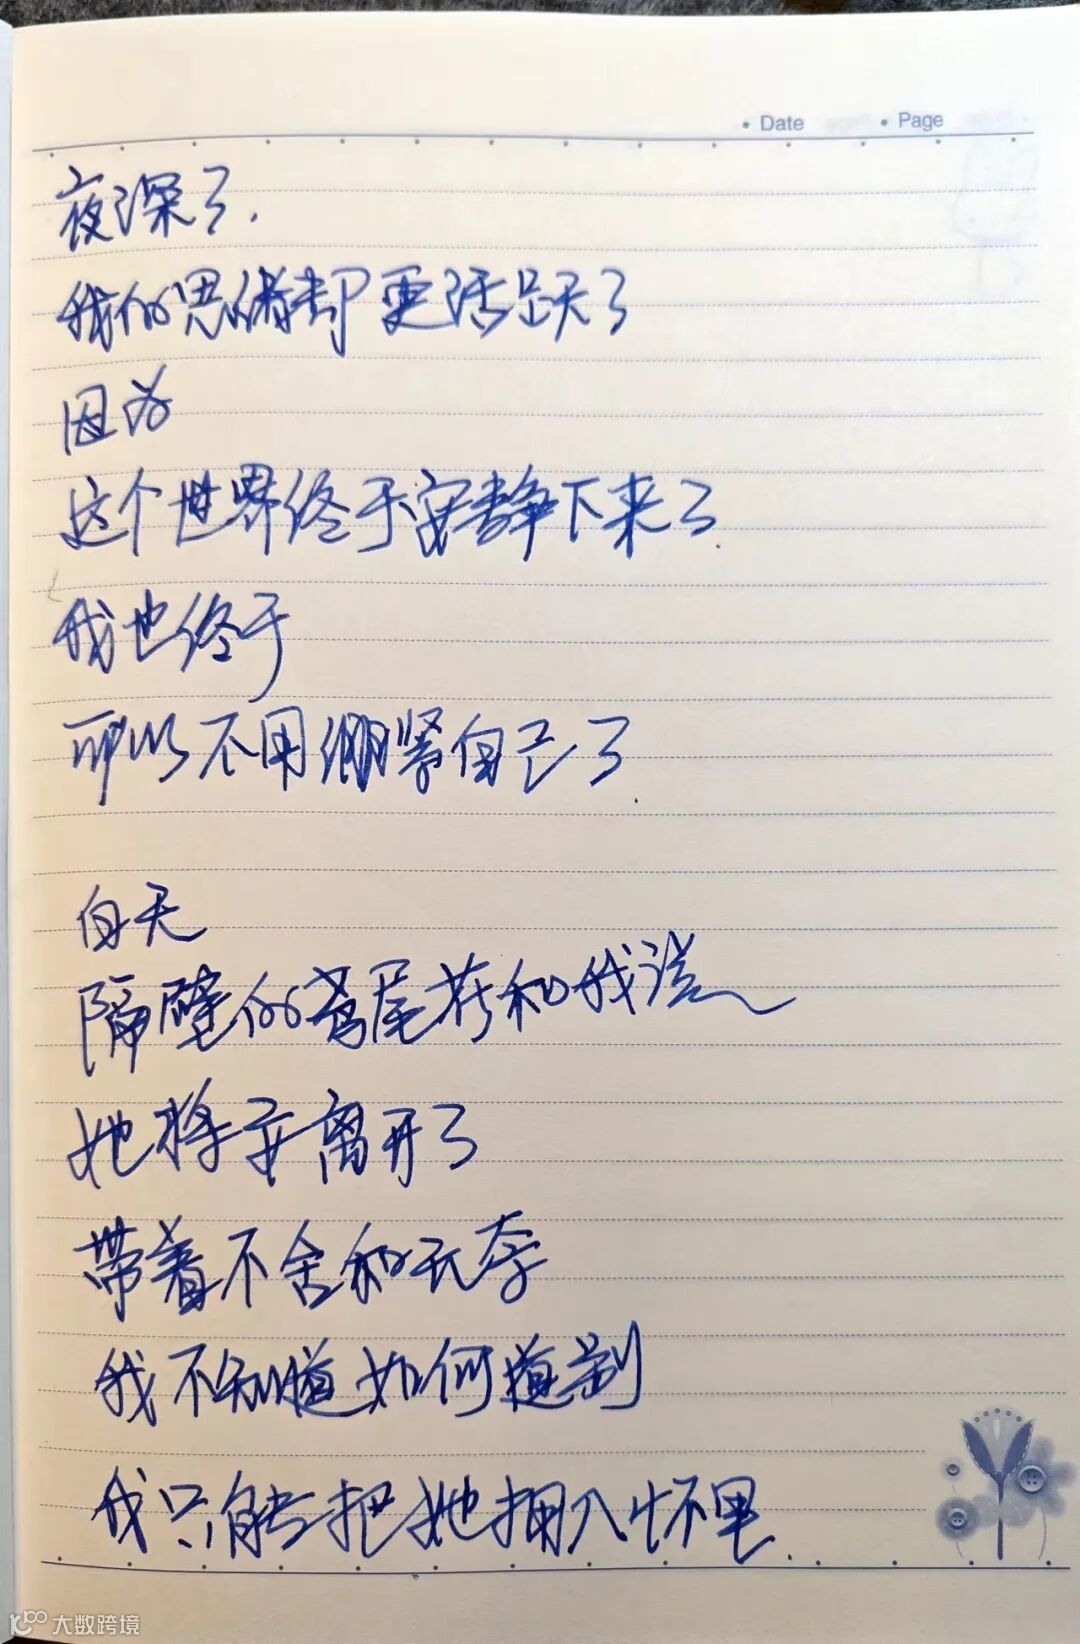 • Date • Page
夜深了.
我的思绪却更活跃了
因为
这个世界终于安静下来了.
我也终于
可以不用绷紧自己了.
白天
隔壁的鸢尾花和我说
她将要离开了
带着不舍和无奈
我不知道如何道别
我只能把她拥入怀里.
大数跨境